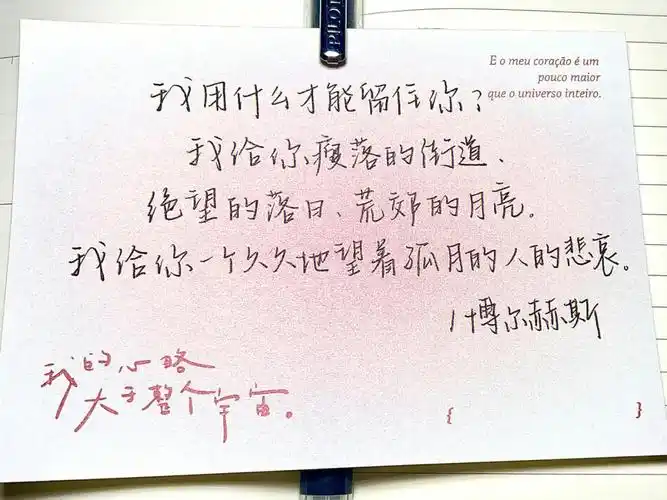 PILOT
E o meu coração é um
pouco maior
que o universo inteiro.
我用什么才能留住你?
我给你瘦落的街道、
绝望的落日、荒郊的月亮。
我给你一个久久地望着孤月的人的悲哀。
博尔赫斯
我的心略
大于整个宇宙。
{ }